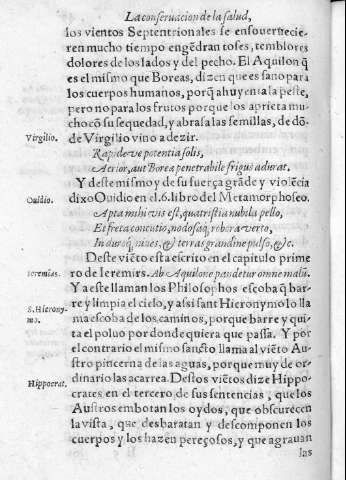 La conseruacion de la salud,
los vientos Septentrionales se enfouernecie-
ren mucho tiempo engẽdran toses, temblores
dolores de los lados y del pecho. El Aquilon q̃
es el mismo que Boreas, dizen que es sano para
los cuerpos humanos, porq̃ ahuyenta la peste,
pero no para los frutos porque los aprieta mu-
cho cõ su sequedad, y abrasa las semillas, de dõ-
Virgilio.
de Virgilio vino a dezir.
Rapidè ve potentia solis,
Acrior, aut Borea penetrabile frigus adurat.
Y deste mismo y de su fuerça grãde y violẽcia
Ouidio.
dixo Ouidio en el.6.libro del Metamorphoseo.
Apta mihi vis est, qua tristia nubila pello,
Et freta concutio, nodosaq́; robora verto,
Induroq́; niues, & terras grandine pulso, &c.
Deste viẽto esta escrito en el capitulo prime
Ieremias.
ro de Ieremirs. Ab Aquilone pandetur omne malũ.
Y a este llaman los Philosophos escoba q̃ bar-
S. Hierony-
mo.
re y limpia el cielo, y assi sant Hieronymo lo lla
ma escoba de los caminos, porque barre y qui-
ta el poluo por donde quiera que passa. Y por
el contrario el mismo sancto llama al viẽto Au-
stro pincerna de las aguas, porque muy de or-
Hippocrat.
dinario las acarrea. Destos viẽtos dize Hippo-
crates en el tercero de sus sentencias, que los
Austros embotan los oydos, que obscurecen
la vista, que desbaratan y descomponen los
cuerpos y los hazen pereçosos, y que agrauan
las